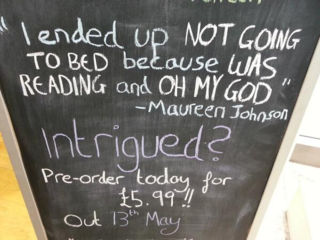 "I ended up NOT GOING
TO BED because WAS
READING and OH MY GOD"
-Maureen Johnson
Intrigued?
Pre-order today for
£5.99!!
Out 13th May